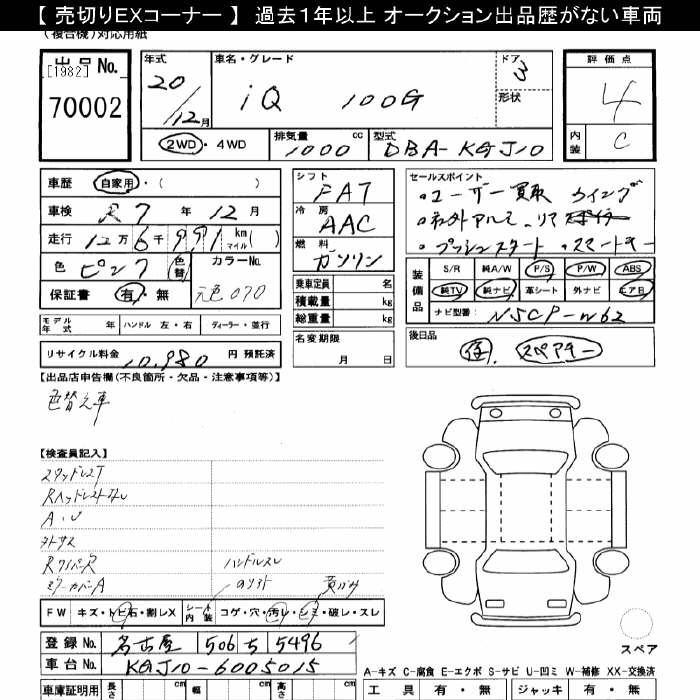 【 売切りEXコーナー 】 過去1年以上 オークション出品歴がない車両
(複合機)対応用紙
出品 No.
[1982]
70002
年式
20/12月
車名・グレード
iQ 100G
ドア
3
形状
評価点
4
内装
C
2WD・4WD
排気量 cc
1000
型式
DBA-KGJ10
車歴 自家用・( )
車検 R7年 12月
走行 12万6千991 km マイル( )
色 ピンク 色替 カラーNo.
元色070
保証書 有・無
シフト
FAT
冷房
AAC
燃料
ガソリン
乗車定員 名
積載量 kg
総重量 kg
セールスポイント
・ユーザー買取 ウイング
・社外アルミ ・リア
・プッシュスタート ・スマートキー
装備品
S/R 純A/W P/S P/W ABS
純TV 純ナビ 革シート 外ナビ エアB
ナビ型番: NSCP-W62
モデル年式 年 ハンドル 左・右 ディーラー・並行
リサイクル料金 10,980 円 預託済
名変期限
月 日
後日品
保 スペアキー
【出品店申告欄(不良箇所・欠品・注意事項等)】
色替え車
【検査員記入】
スタッドレスT
RヘッドレストスレA・U
ハンドルスレ
FW キズ・トビ石・割レX
シート内装 コゲ・穴・汚レ・シミ・破レ・スレ
登録 No. 名古屋 506 ち 5496
車台 No. KGJ10-6005015
スペア
A-キズ C-腐食 E-エクボ S-サビ U-凹ミ W-補修 XX-交換済
車庫証明用 長さ cm 幅 cm 高さ cm
工具 有・無 ジャッキ 有・無